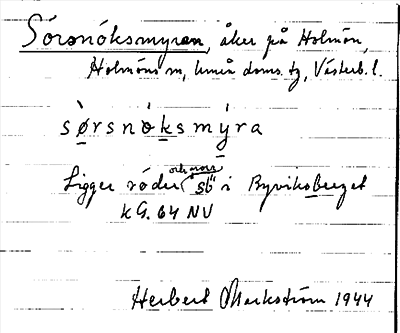 Sörsnöksmyran, åker på Holmön,
Holmöns sn, Umeå doms. tg, Västerb. l.
sø̀rsnòksmýra
Ligger söder och norr i Ryviksberget
kG. 64 NV
Herbert Markström 1944